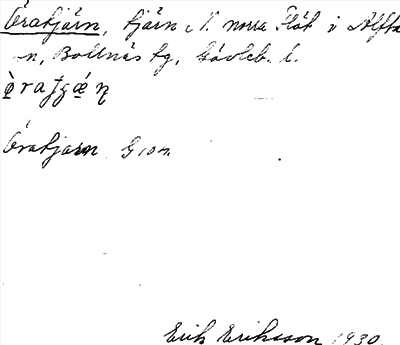 Öratjärn, tjärn i N. norra Flät i Alfta
sn, Bollnäs tg, Gävleb. l.
Öratjärn G 104.
Erik Eriksson 1930.